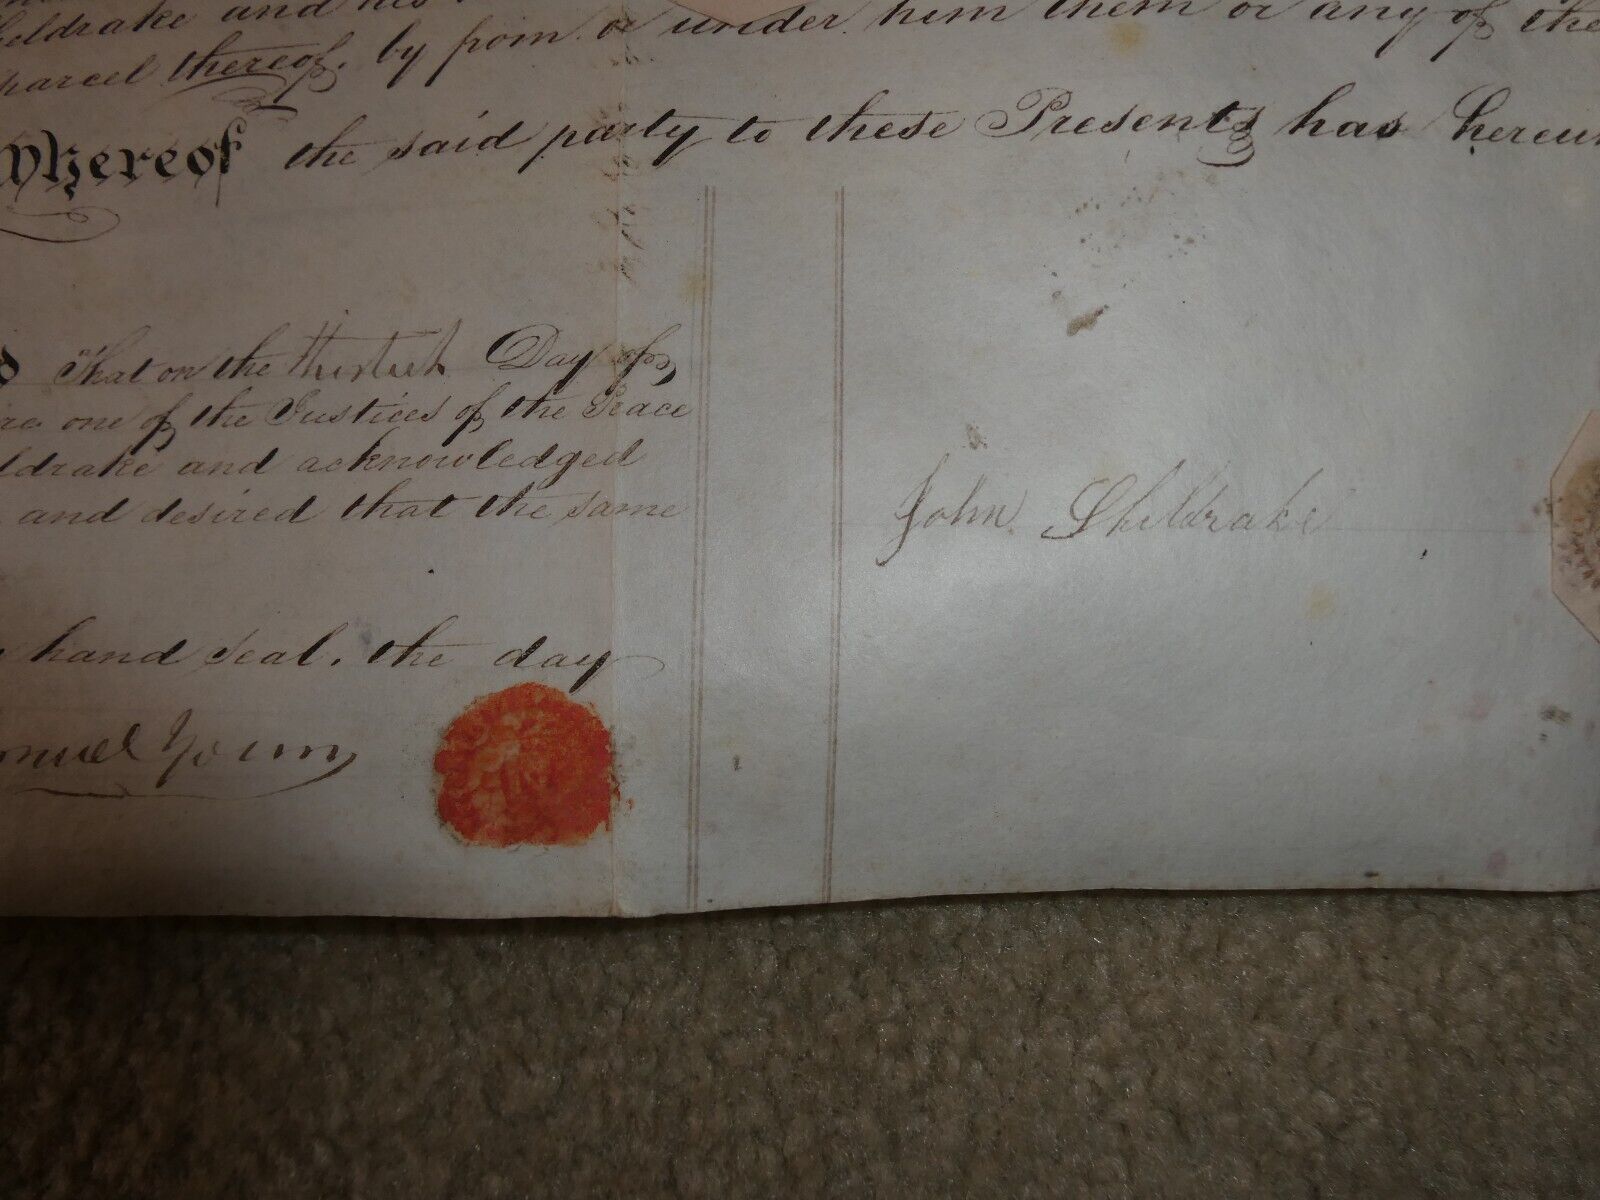 eldrake and his
parcel thereof, by from or under him them or any of the
Whereof the said party to these Presents has hereun
That on the thirtieth Day of
one of the Justices of the Peace
ldrake and acknowledged
and desired that the same
hand seal, the day
muel Young
John Sheldrake